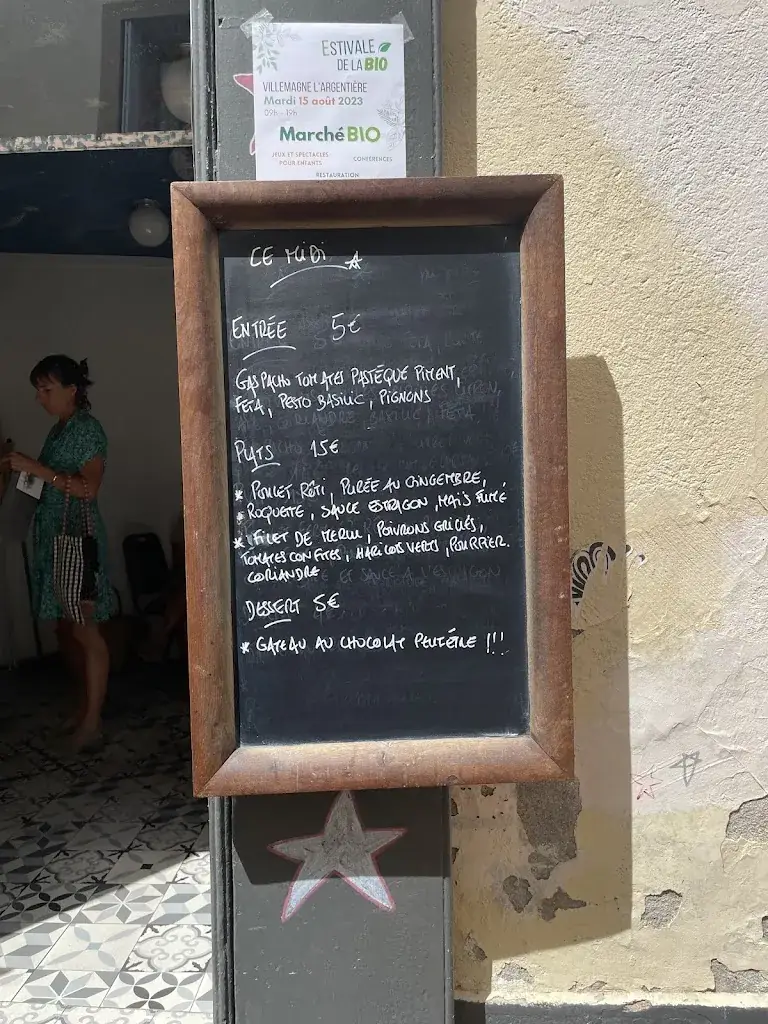 ESTIVALE
DE LA BIO
VILLEMAGNE L'ARGENTIÈRE
Mardi 15 août 2023
09h - 19h
Marché BIO
JEUX ET SPECTACLES
POUR ENFANTS
CONFÉRENCES
RESTAURATION
CE MIDI
ENTRÉE 5€
GASPACHO TOMATES PASTÈQUE PIMENT,
FETA, PESTO BASILIC, PIGNONS
PLATS 15€
* POULET RÔTI, PURÉE AU GINGEMBRE,
* ROQUETTE, SAUCE ESTRAGON, MAÏS FUMÉ
* FILET DE MERLU, POIVRONS GRILLÉS,
TOMATES CONFITES, HARICOTS VERTS, POURPIER.
CORIANDRE
DESSERT 5€
* GATEAU AU CHOCOLAT PEUTÊTRE !!!